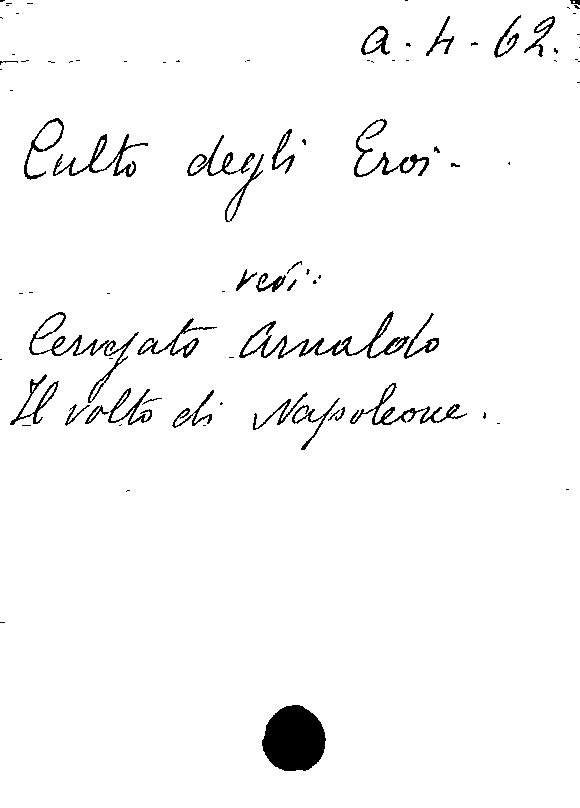 a.4-62.
Culto degli Eroi-
vedi:
Cervesato Arnaldo
Il volto di Napoleone.